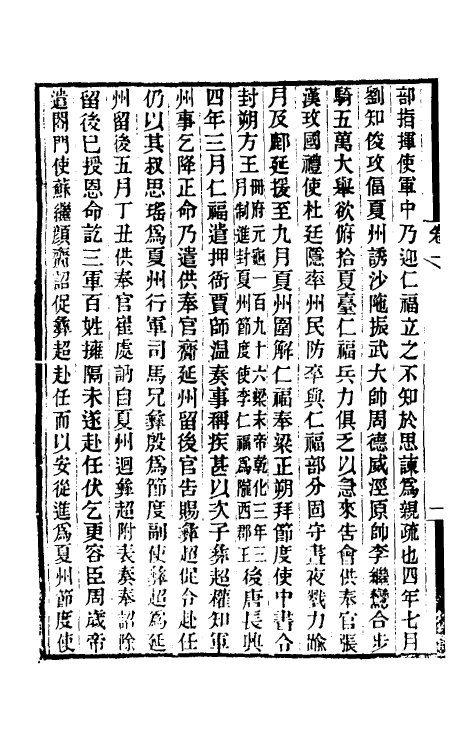 部指揮使軍中乃迎仁福立之不知於思諫為親疏也四年七月
劉知俊攻偪夏州誘沙陁振武大帥周德威涇原帥李繼鸞合步
騎五萬大舉欲俯拾夏臺仁福兵力俱乏以急來告會供奉官張
漢玫國禮使杜廷隱率州民防卒與仁福部分固守晝夜戮力踰
月及鄜延援至九月夏州圍解仁福奉梁正朔拜節度使中書令
封朔方王冊府元龜一百九十六梁末帝乾化三年三月制進封夏州節度使李仁福為隴西郡王後唐長興
四年三月仁福遣押衙賈師溫奏事稱疾甚以次子彝超權知軍
州事乞降正命乃遣供奉官齎延州留後官告賜彝超促令赴任
仍以其叔思瑤為夏州行軍司馬兄彝殷為節度副使彝超為延
州留後五月丁丑供奉官崔處訥自夏州迴彝超附表奏奉詔除
留後已授恩命訖三軍百姓擁隔未遂赴任伏乞更容臣周歲帝
遣閤門使蘇繼顏齎詔促彝超赴任而以安從進為夏州節度使
卷一
一